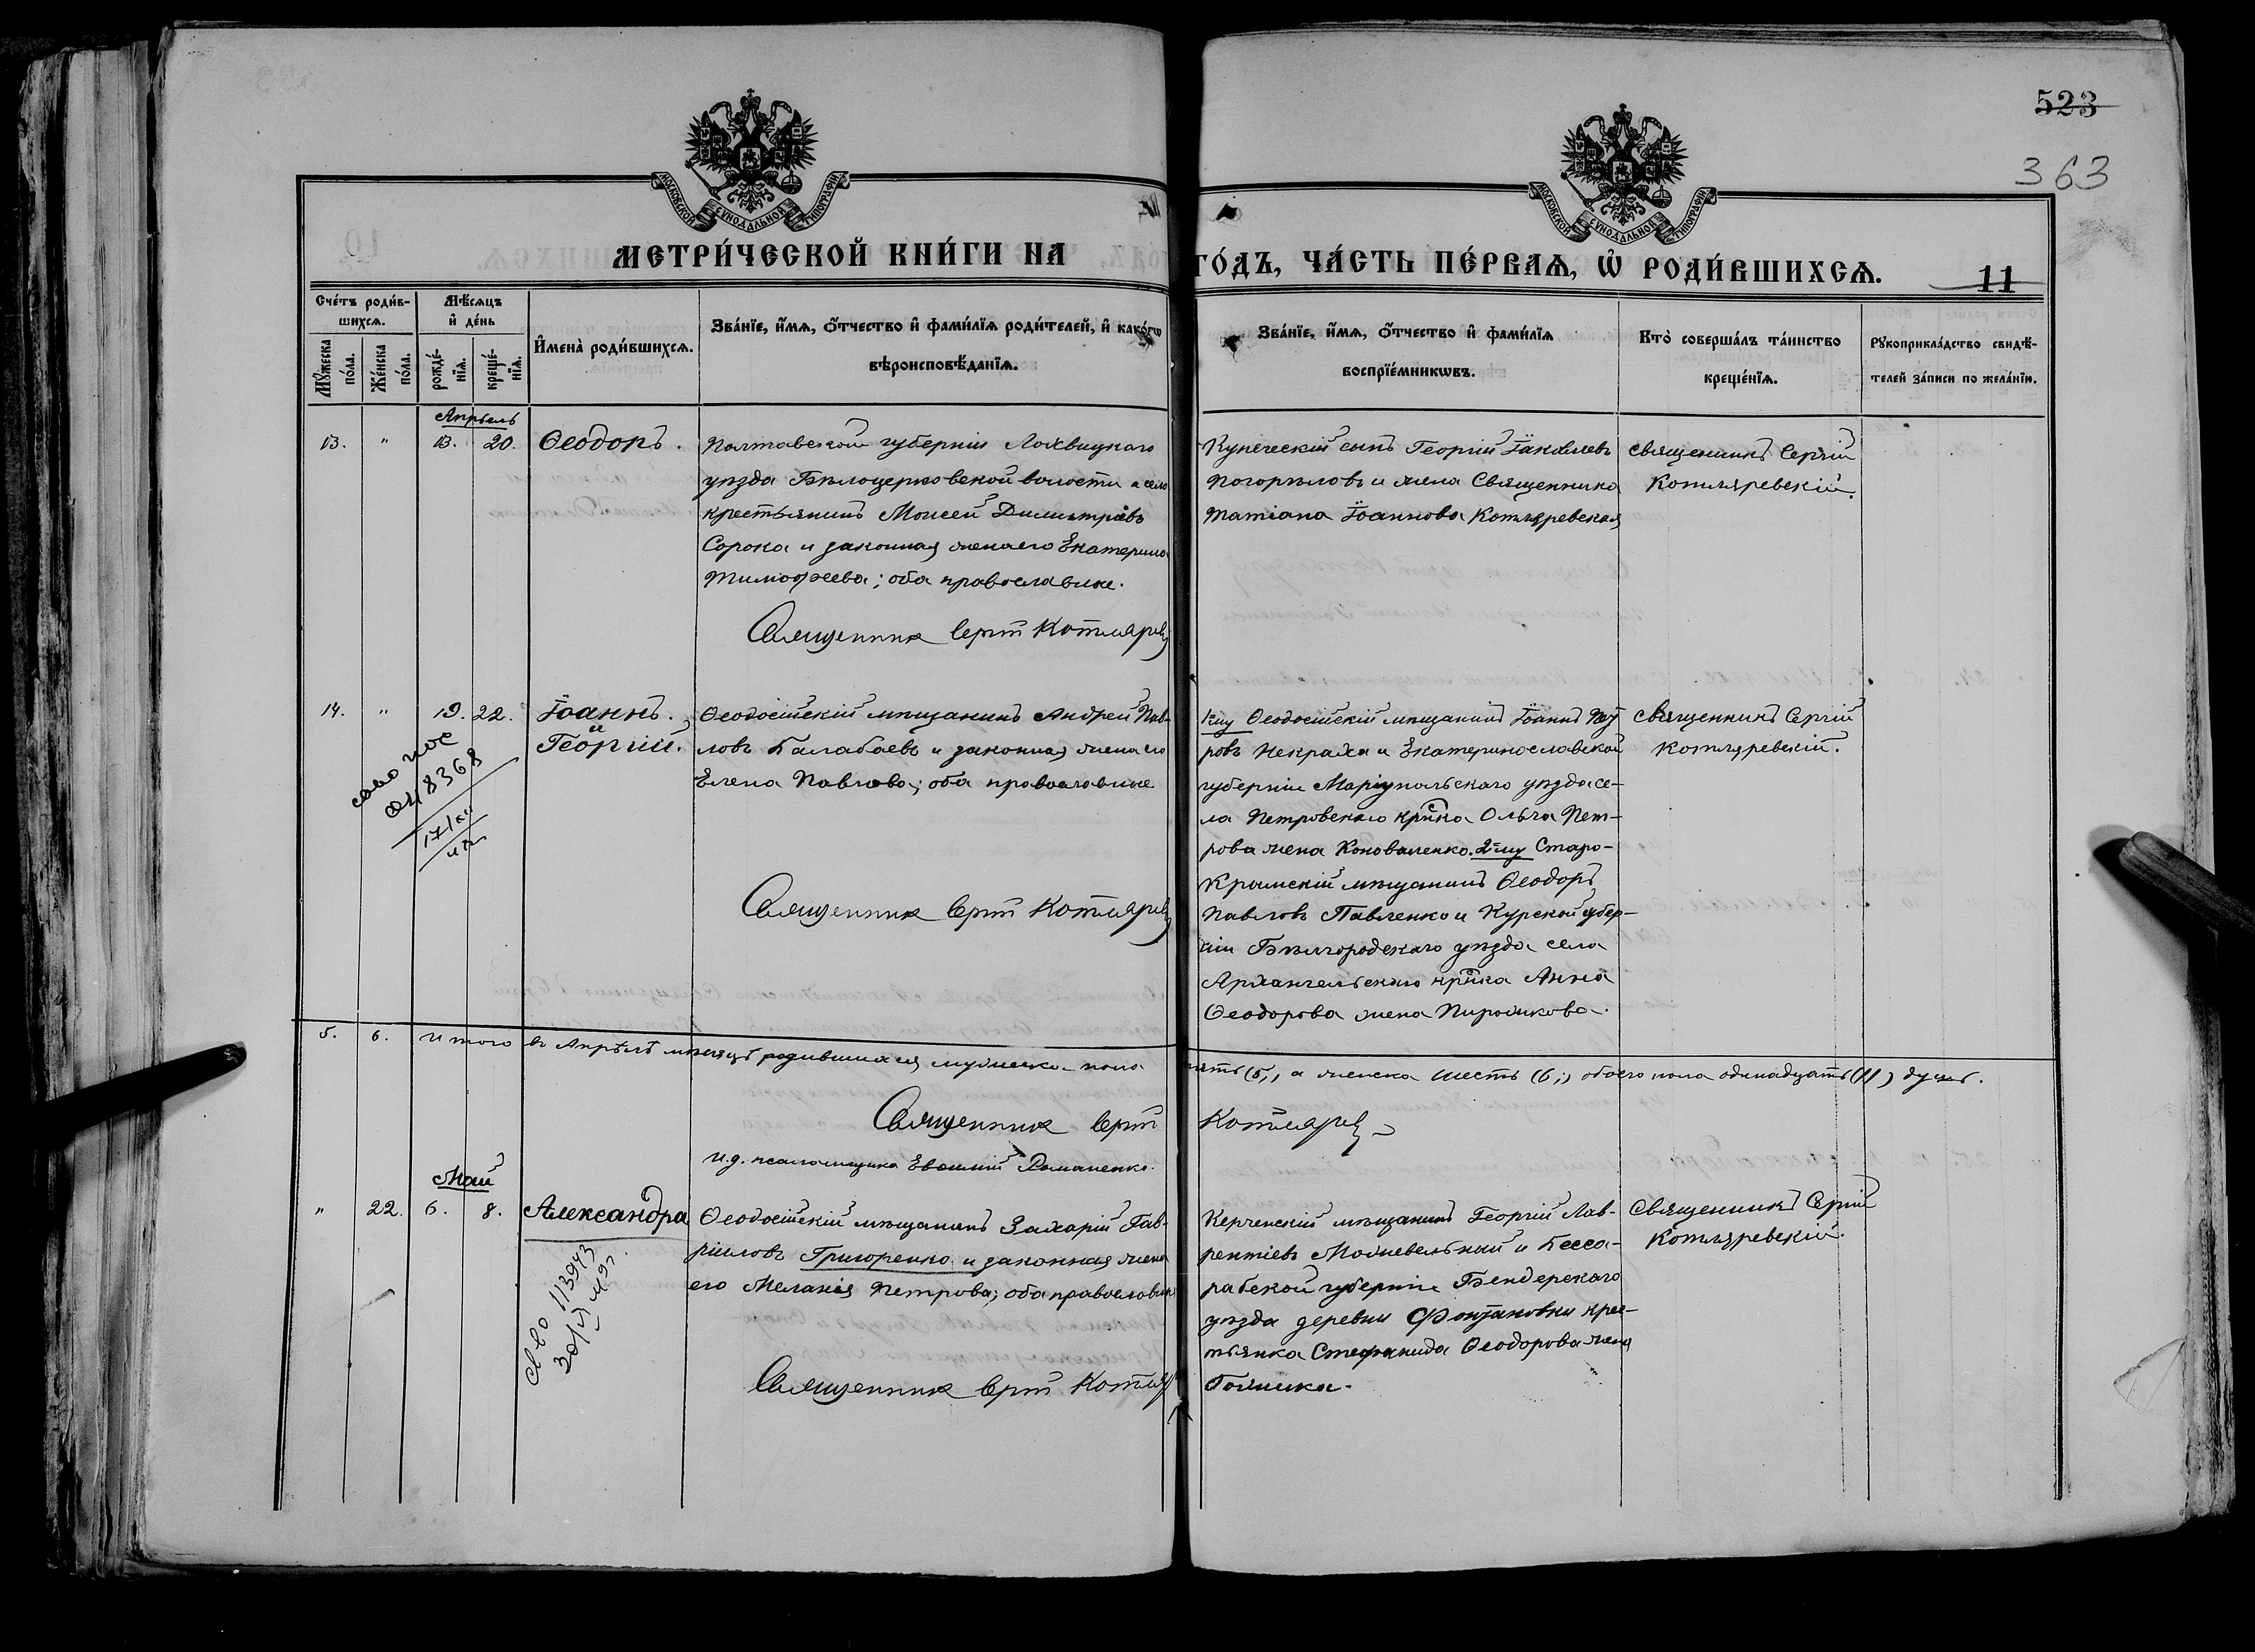 523
363
МОСКОВСКОЙ СѴНОДАЛЬНОЙ ТИПОГРАФІИ
МОСКОВСКОЙ СѴНОДАЛЬНОЙ ТИПОГРАФІИ
МЕТРИ́ЧЕСКОЙ КНИ́ГИ НА ГО́ДЪ, ЧА́СТЬ ПЕ́РВАѦ, Ѡ҆ РОДИ́ВШИХСѦ. 11
Сче́тъ роди́в-
шихсѧ.
Мꙋ́жеска по́ла.
Же́нска по́ла.
Мѣ́сѧцъ
и҆ де́нь
рожде́-
нїѧ.
креще́-
нїѧ.
И҆мена̀ роди́вшихсѧ.
Зва́нїе, и҆́мѧ, ѻ҆́тчество и҆ фами́лїѧ роди́телей, и҆ како́гѡ
вѣроисповѣ́данїѧ.
Зва́нїе, и҆́мѧ, ѻ҆́тчество и҆ фами́лїѧ
воспрїе́мникѡвъ.
Кто̀ соверша́лъ та́инство
креще́нїѧ.
Рꙋкоприкла́дство свидѣ́-
телей за́писи по жела́нїю.
Апрѣль
13. " 13. 20. Ѳеодоръ.
Полтавской губерніи Лохвицкаго
уѣзда Бѣлоцерковской волости и села
крестьянинъ Моисей Димитріевъ
Сорока и законная жена его Екатерина
Тимофеева; оба православные.
Священникъ Сергій Котляревскій
Купеческій сынъ Георгій Іаковлевъ
Погорѣловъ и жена Священника
Татіана Іоаннова Котляревская
Священникъ Сергій
Котляревскій.
14. " 19. 22. Іоаннъ.
и
Георгій.
048368
Ѳеодосійскій мѣщанинъ Андрей Пав-
ловъ Балабаевъ и законная жена его
Елена Павлова; оба православные
Священникъ Сергій Котляревскій
1му Ѳеодосійскій мѣщанинъ Іоаннъ
ровъ Некраха и Екатеринославской
губерніи Маріупольскаго уѣзда се-
ла Петровскаго кр̃нка Ольга Пет-
рова жена Коноваленко. 2-му Старо-
Крымскій мѣщанинъ Ѳеодоръ
Павловъ Павленко и Курской губер-
ніи Бѣлгородскаго уѣзда села
Архангельскаго кр̃нка Анна
Ѳеодорова жена Пирожкова.
Священникъ Сергій
Котляревскій.
5. 6. Итого въ Апрѣлѣ мѣсяцѣ родившихся мужеска пола пять (5,) а женска шесть (6;) обоего пола одинадцать (11) душъ.
Священникъ Сергій Котляревскій
И.д. псаломщика Евѳимій Романенко.
Май
" 22. 6. 8. Александра
113943
Ѳеодосійскій мѣщанинъ Захарій Гав-
ріиловъ Григоренко и законная жена
его Меланія Петрова; оба православные
Священникъ Сергій Котляр
Керченскій мѣщанинъ Георгій Лав-
рентіевъ Можневельный и Бесса-
рабской губерніи Бендерскаго
уѣзда деревни Фонтановки крес-
тьянка Стефанида Ѳеодорова жена
Голинка.
Священникъ Сергій
Котляревскій.